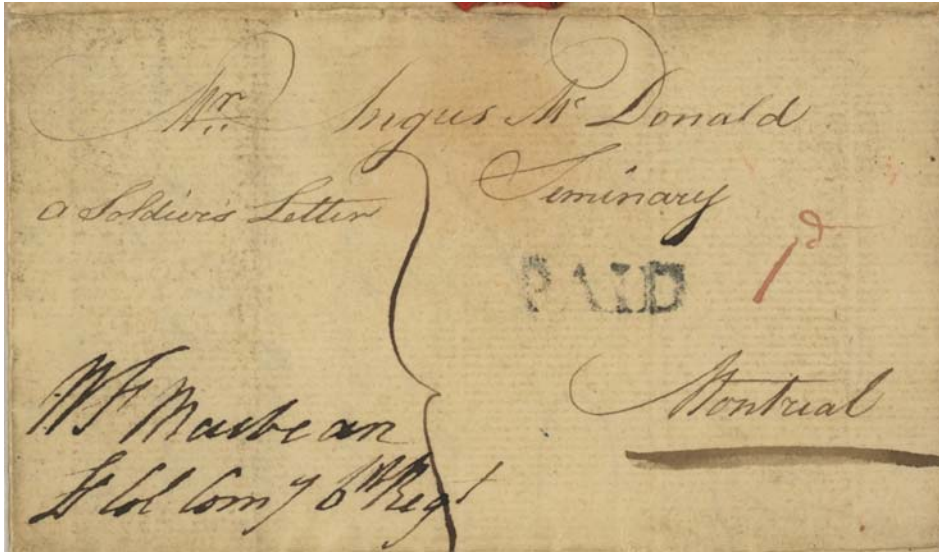 Mr. Angus McDonald
Seminary
a Soldier's Letter
PAID
1d
Montreal
W F Macbean
Lt Col Com 6th Regt